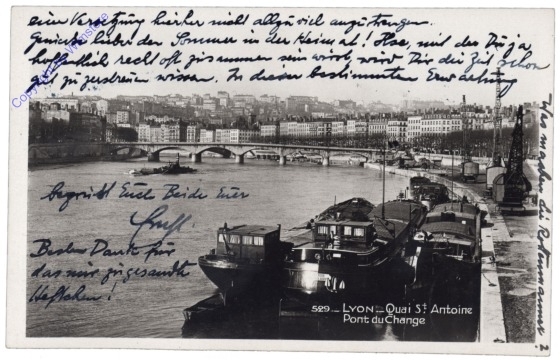 einer Versetzung hierher nicht allzu viel anzustrengen.
Genieße lieber den Sommer in der Heimat! Ilse, mit der Du ja
hoffentlich recht oft zusammen sein wirst, wird Dir die Zeit schon
gut zu zerstreuen wissen. In dieser bestimmten Erwartung
begrüßt Euch Beide Euer
Besten Dank für
das mir zugesandte
Heftchen!
Was machen die
529 _ LYON _ Quai St Antoine
Pont du Change